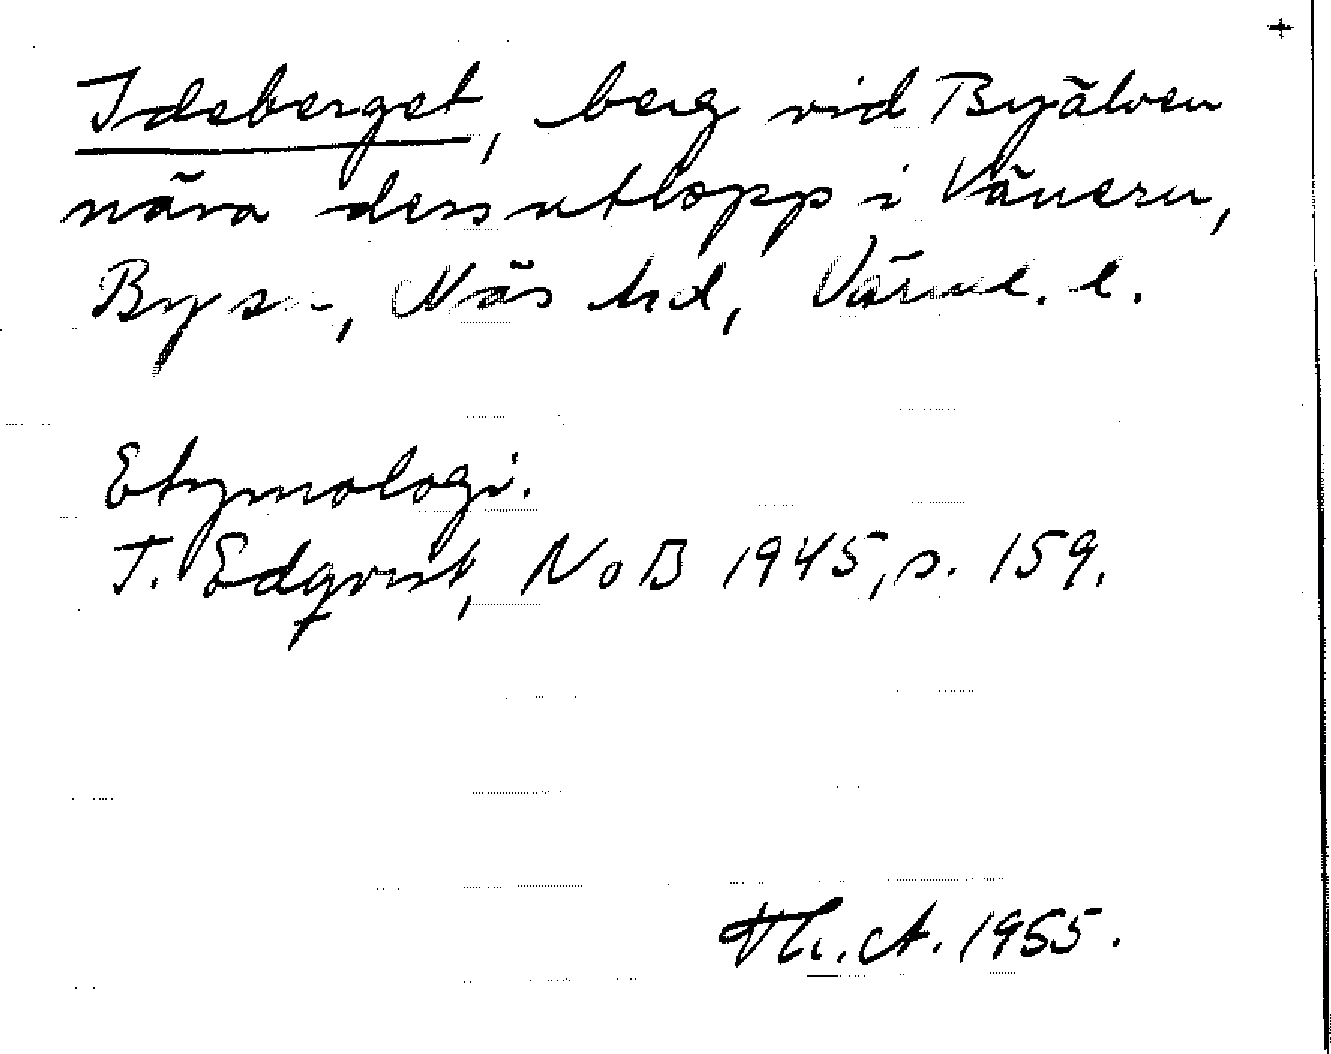 +
Ideberget, berg vid Byälven
nära dess utlopp i Vänern,
By sn, Näs hd, Värml. l.
Etymologi.
T. Edqvist, NoB 1945, s. 159.
Th. A. 1955.